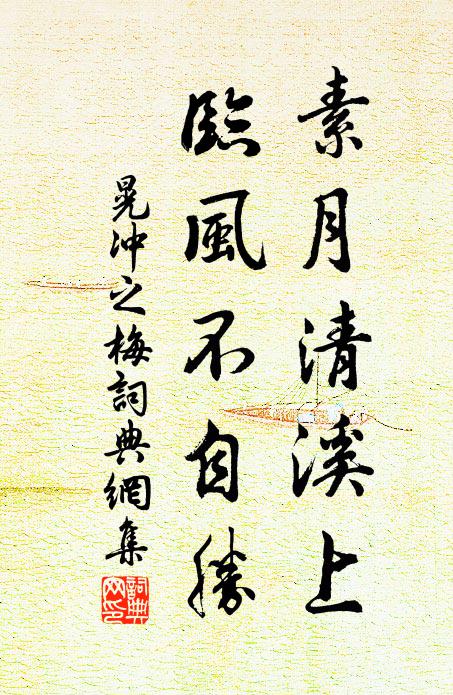 素月清溪上
臨風不自勝
晁冲之梅詞典網集
詞典網印